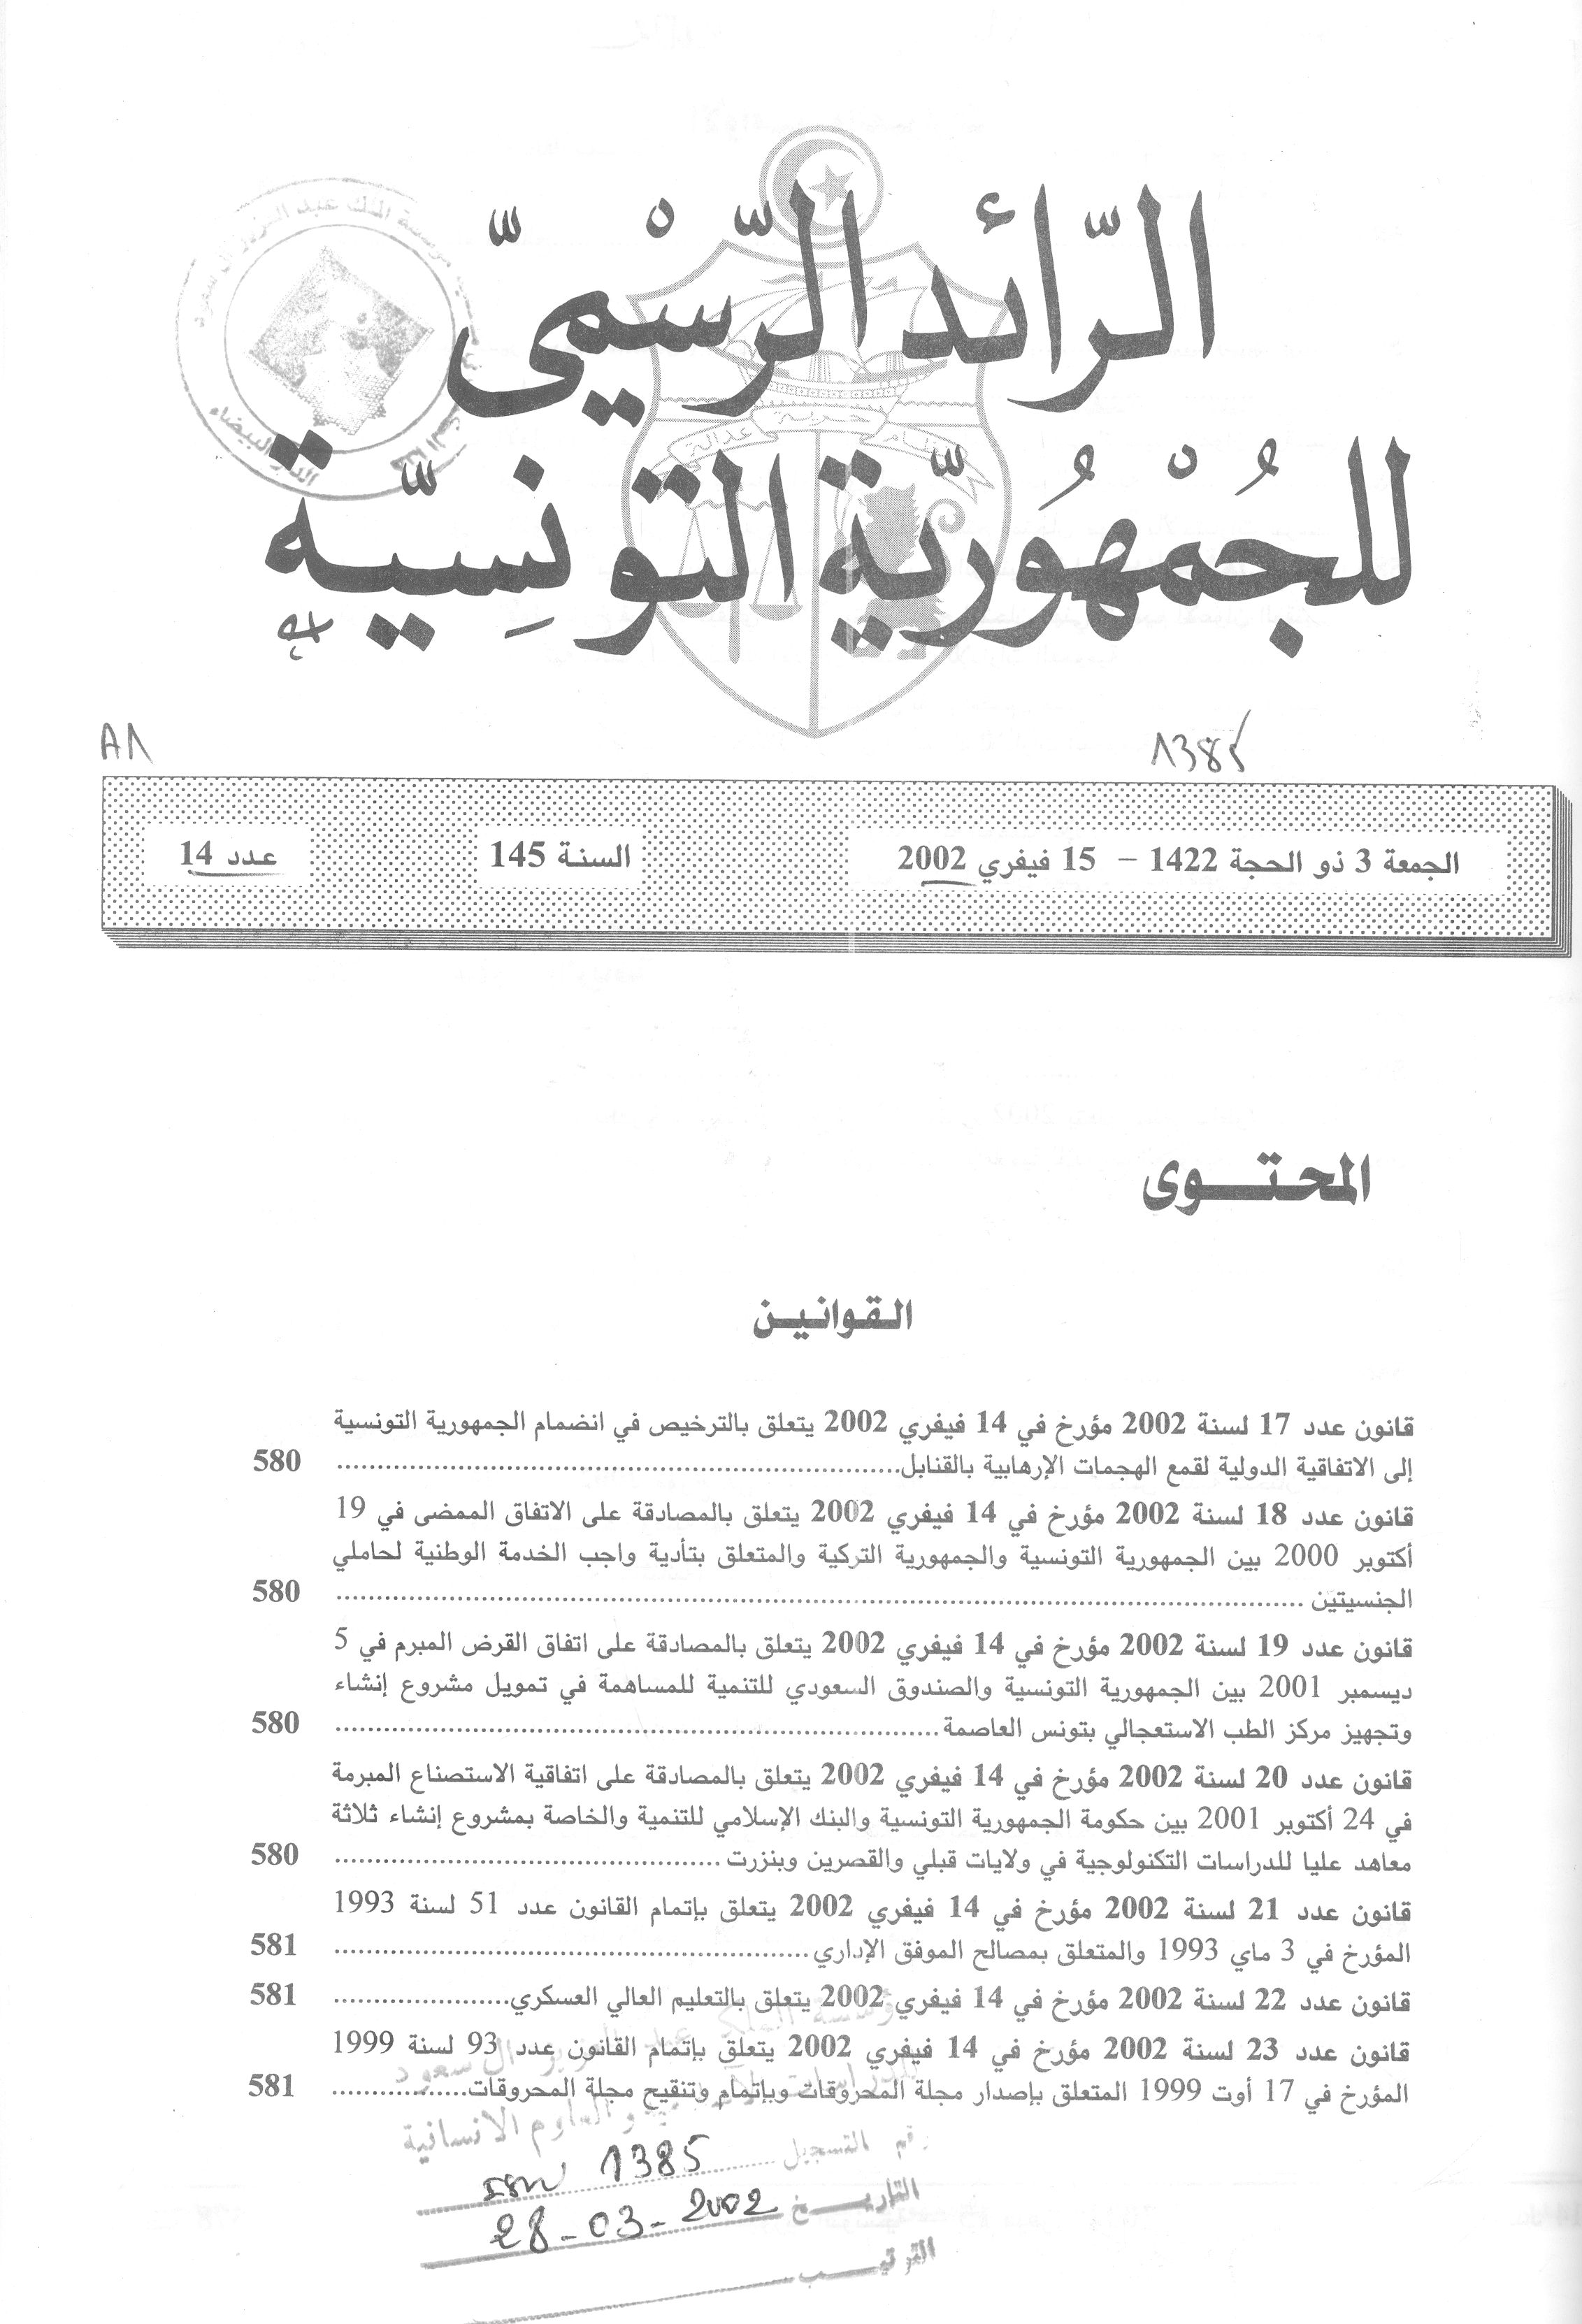 الرّائد الرّسْميّ
للجُمْهُوريّة التونِسيّة
نظام حرية عدالة
A1
1385
الجمعة 3 ذو الحجة 1422 – 15 فيفري 2002
السنة 145
عدد 14
المحتوى
القوانين
قانون عدد 17 لسنة 2002 مؤرخ في 14 فيفري 2002 يتعلق بالترخيص في انضمام الجمهورية التونسية
إلى الاتفاقية الدولية لقمع الهجمات الإرهابية بالقنابل 580
قانون عدد 18 لسنة 2002 مؤرخ في 14 فيفري 2002 يتعلق بالمصادقة على الاتفاق الممضى في 19
أكتوبر 2000 بين الجمهورية التونسية والجمهورية التركية والمتعلق بتأدية واجب الخدمة الوطنية لحاملي
الجنسيتين 580
قانون عدد 19 لسنة 2002 مؤرخ في 14 فيفري 2002 يتعلق بالمصادقة على اتفاق القرض المبرم في 5
ديسمبر 2001 بين الجمهورية التونسية والصندوق السعودي للتنمية للمساهمة في تمويل مشروع إنشاء
وتجهيز مركز الطب الاستعجالي بتونس العاصمة 580
قانون عدد 20 لسنة 2002 مؤرخ في 14 فيفري 2002 يتعلق بالمصادقة على اتفاقية الاستصناع المبرمة
في 24 أكتوبر 2001 بين حكومة الجمهورية التونسية والبنك الإسلامي للتنمية والخاصة بمشروع إنشاء ثلاثة
معاهد عليا للدراسات التكنولوجية في ولايات قبلي والقصرين وبنزرت 580
قانون عدد 21 لسنة 2002 مؤرخ في 14 فيفري 2002 يتعلق بإتمام القانون عدد 51 لسنة 1993
المؤرخ في 3 ماي 1993 والمتعلق بمصالح الموفق الإداري 581
قانون عدد 22 لسنة 2002 مؤرخ في 14 فيفري 2002 يتعلق بالتعليم العالي العسكري 581
قانون عدد 23 لسنة 2002 مؤرخ في 14 فيفري 2002 يتعلق بإتمام القانون عدد 93 لسنة 1999
المؤرخ في 17 أوت 1999 المتعلق بإصدار مجلة المحروقات وبإتمام وتنقيح مجلة المحروقات 581
والعلوم الانسانية
رقم التسجيل 1385
التاريخ 28-03-2002
الترتيب